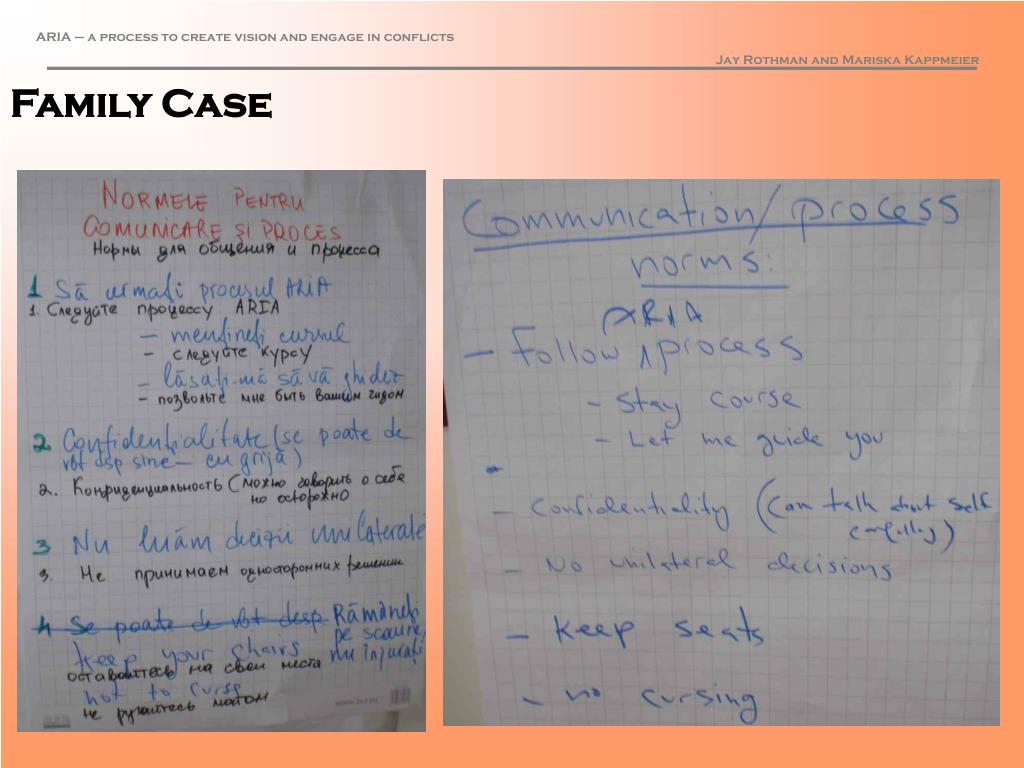 ARIA – A PROCESS TO CREATE VISION AND ENGAGE IN CONFLICTS
JAY ROTHMAN AND MARISKA KAPPMEIER
FAMILY CASE
NORMELE PENTRU
COMUNICARE ȘI PROCES
Нормы для общения и процесса
1 Să urmați procesul ARIA
1. Следуйте процессу ARIA
– mențineți cursul
– следуйте курсу
– lăsați-mă să vă ghidez
– позвольте мне быть вашим гидом
2 Confidențialitate (se poate de
vbt dsp sine – cu grijă)
2. Конфиденциальность (можно говорить о себе
но осторожно
3 Nu luăm decizii unilaterale
3. Не принимаем односторонних решении
4 Se poate de vbt desp Rămâneți
pe scaune,
keep your chairs nu injurați
оставайтесь на свои места
not to curse
не ругайтесь матом
Communication/process
norms:
ARIA
– Follow ʌ process
– Stay course
– Let me guide you
–
– Confidentiality (Can talk about self
carefully)
– No unilateral decisions
– Keep seats
– no cursing